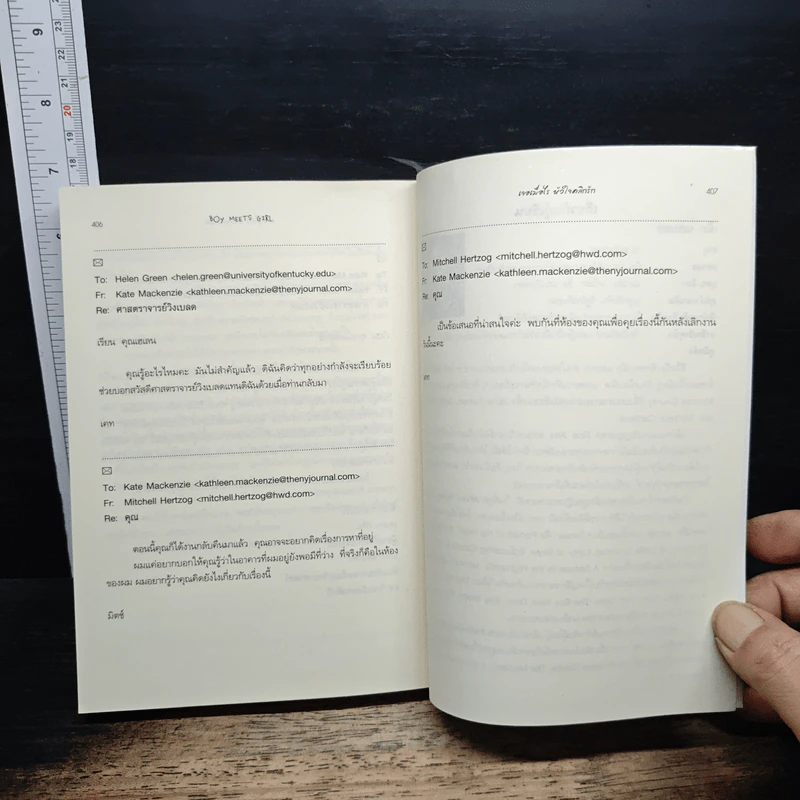 406
BOY MEETS GIRL
To: Helen Green <helen.green@universityofkentucky.edu>
Fr: Kate Mackenzie <kathleen.mackenzie@thenyjournal.com>
Re: ศาสตราจารย์วิงเบลด
เรียน คุณเฮเลน
คุณรู้อะไรไหมคะ มันไม่สำคัญแล้ว ดิฉันคิดว่าทุกอย่างกำลังจะเรียบร้อย
ช่วยบอกสวัสดีศาสตราจารย์วิงเบลดแทนดิฉันด้วยเมื่อท่านกลับมา
เคท
To: Kate Mackenzie <kathleen.mackenzie@thenyjournal.com>
Fr: Mitchell Hertzog <mitchell.hertzog@hwd.com>
Re: คุณ
ตอนนี้คุณก็ได้งานกลับคืนมาแล้ว คุณอาจจะอยากคิดเรื่องการหาที่อยู่
ผมแค่อยากบอกให้คุณรู้ว่าในอาคารที่ผมอยู่ยังพอมีที่ว่าง ที่จริงก็คือในห้อง
ของผม ผมอยากรู้ว่าคุณคิดยังไงเกี่ยวกับเรื่องนี้
มิตช์
เจอเมื่อไร หัวใจคลิกรัก
407
To: Mitchell Hertzog <mitchell.hertzog@hwd.com>
Fr: Kate Mackenzie <kathleen.mackenzie@thenyjournal.com>
Re: คุณ
เป็นข้อเสนอที่น่าสนใจค่ะ พบกันที่ห้องของคุณเพื่อคุยเรื่องนี้กันหลังเลิกงาน
วันนี้นะคะ
เคท
9
8
7
23
22
21
20
19
18
17